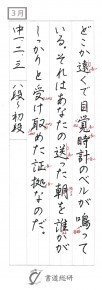 3月
どこか遠くで目覚時計のベルが鳴って
いる。それはあなたの送った朝を誰かが
しっかりと受け取めた証拠なのだ。
中一、二、三 八段〜初段
書道総研